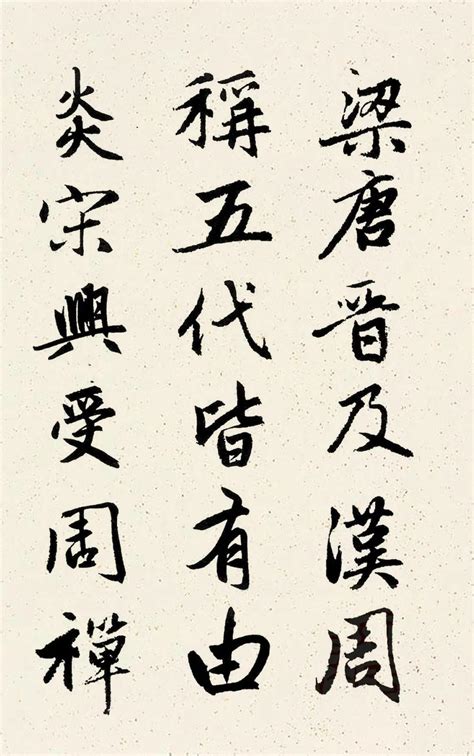 梁唐晋及漢周
稱五代皆有由
炎宋興受周禪